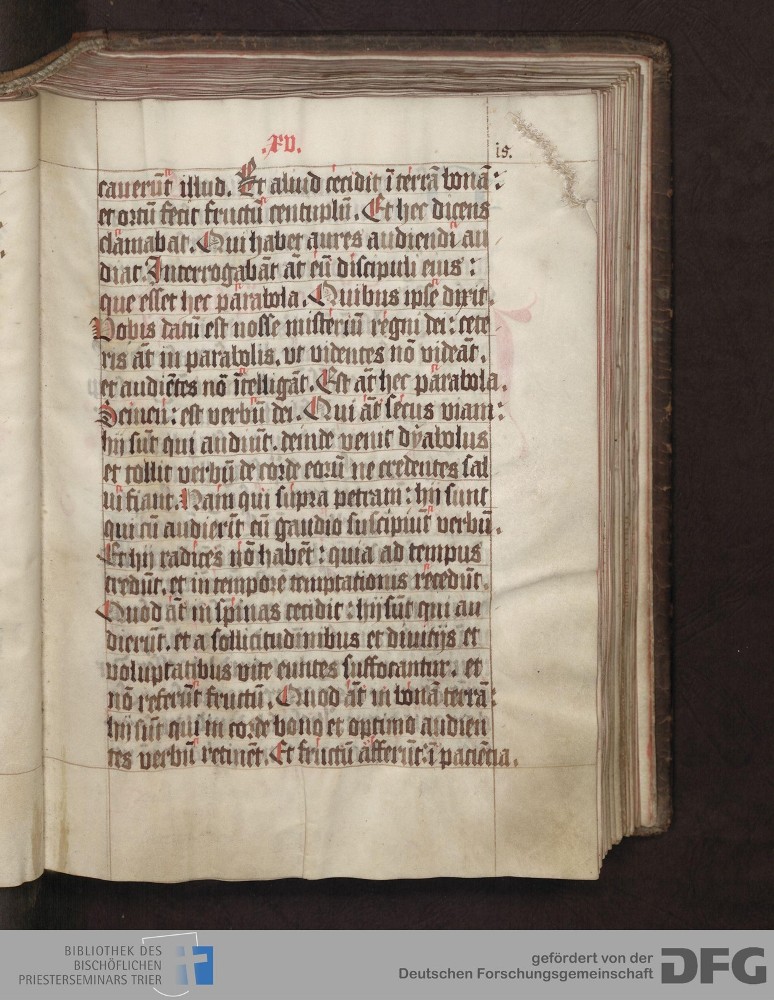 .xv.
15.
cauerūt illud. Et aliud cecidit ī terrā bonā:
et ortū fecit fructū centuplū. Et hec dicens
clamabat. Qui habet aures audiendi au
diat. Interrogabāt āt eū discipuli eius:
que esset hec parabola. Quibus ipse dixit.
Vobis datū est nosse misteriū regni dei: cete
ris āt in parabolis. vt videntes nō videāt.
et audiētes nō ītelligāt. Est āt hec parabola.
Semen: est verbū dei. Qui āt secus viam:
hij sūt qui audiūt. deinde venit dyabolus
et tollit verbū de corde eorū ne credentes sal
ui fiant. Nam qui supra petram: hij sunt
qui cū audierūt cū gaudio suscipiūt verbū.
Et hij radices nō habēt: quia ad tempus
credūt. et in tempore temptationis recedūt.
Quod āt in spinas cecidit: hij sūt qui au
dierūt. et a sollicitudinibus et diuitijs et
voluptatibus vite euntes suffocantur. et
nō referūt fructū. Quod āt in bonā terrā:
hij sūt qui in corde bono et optimo audien
tes verbū retinēt. Et fructū afferūt ī paciētia.
BIBLIOTHEK DES
BISCHÖFLICHEN
PRIESTERSEMINARS TRIER
gefördert von der
Deutschen Forschungsgemeinschaft DFG